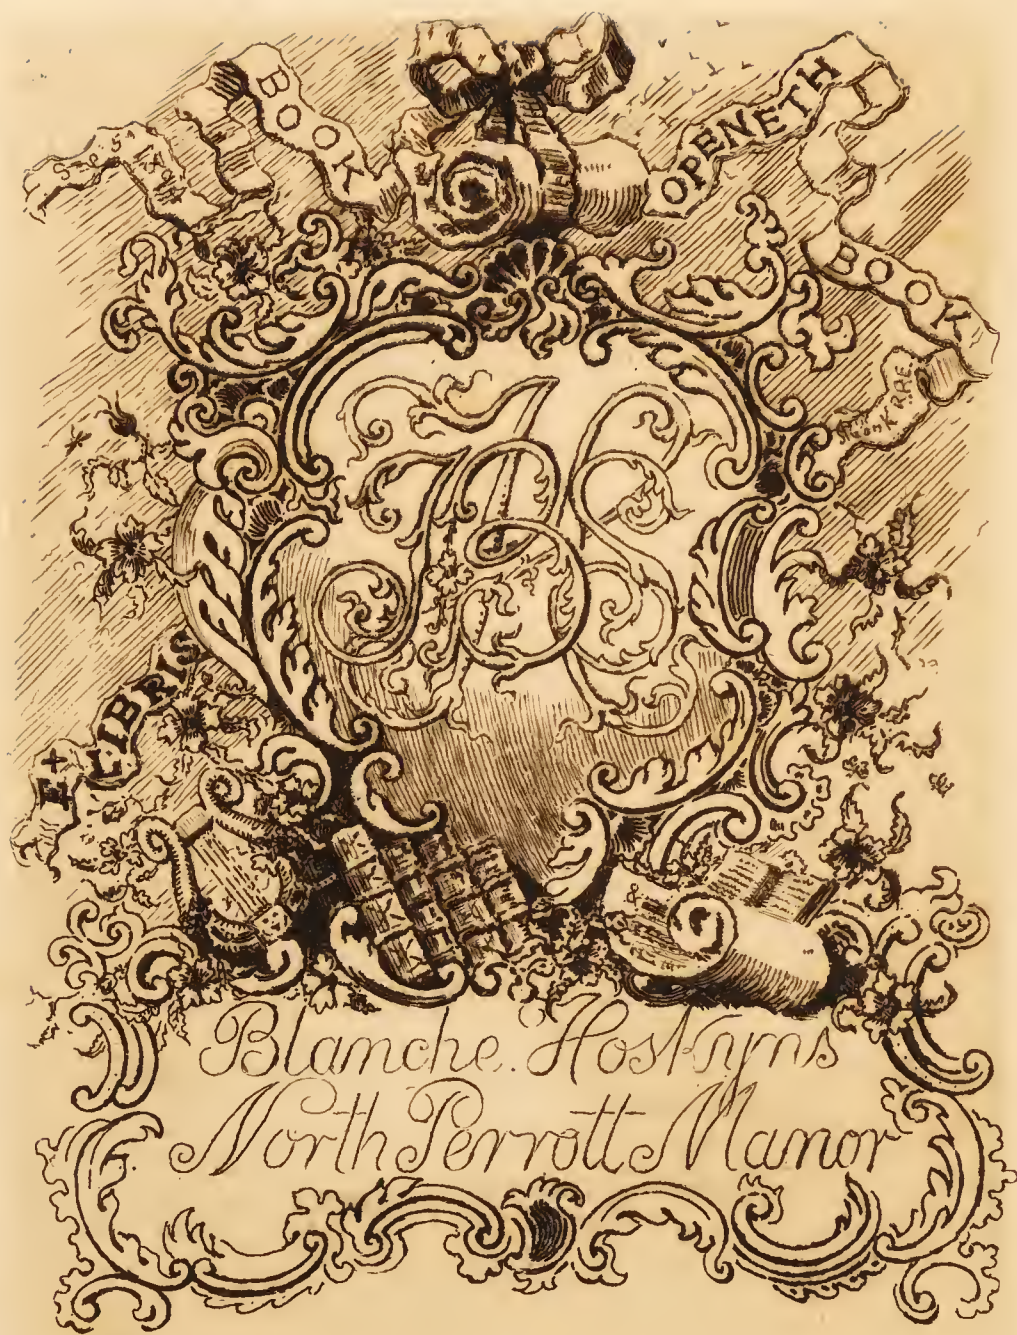 BOOK OPENETH BOOK
EX LIBRIS
&
Blanche. Hoskyns
North Perrott Manor